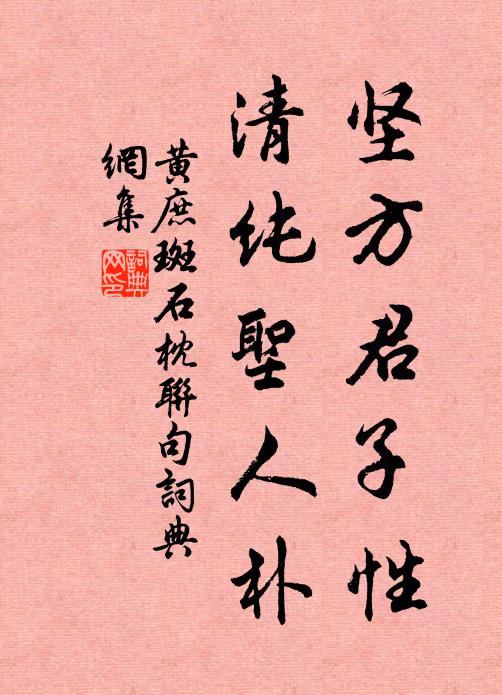 坚方君子性
清纯聖人朴
黄庶斑石枕聯句詞典
網集
詞典
网印